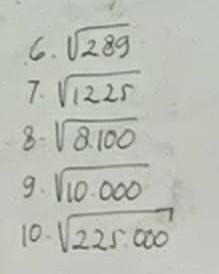 6. √289
7. √1225
8. √8.100
9. √10.000
10. √225.000